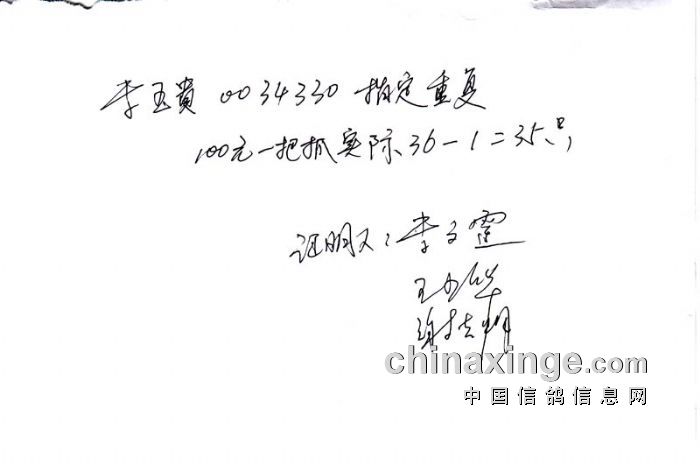 李玉贵 0034330 指定重复
100元一把抓实际36-1=35只
证明人:李
王
谢
chinaxinge.com
中国信鸽信息网